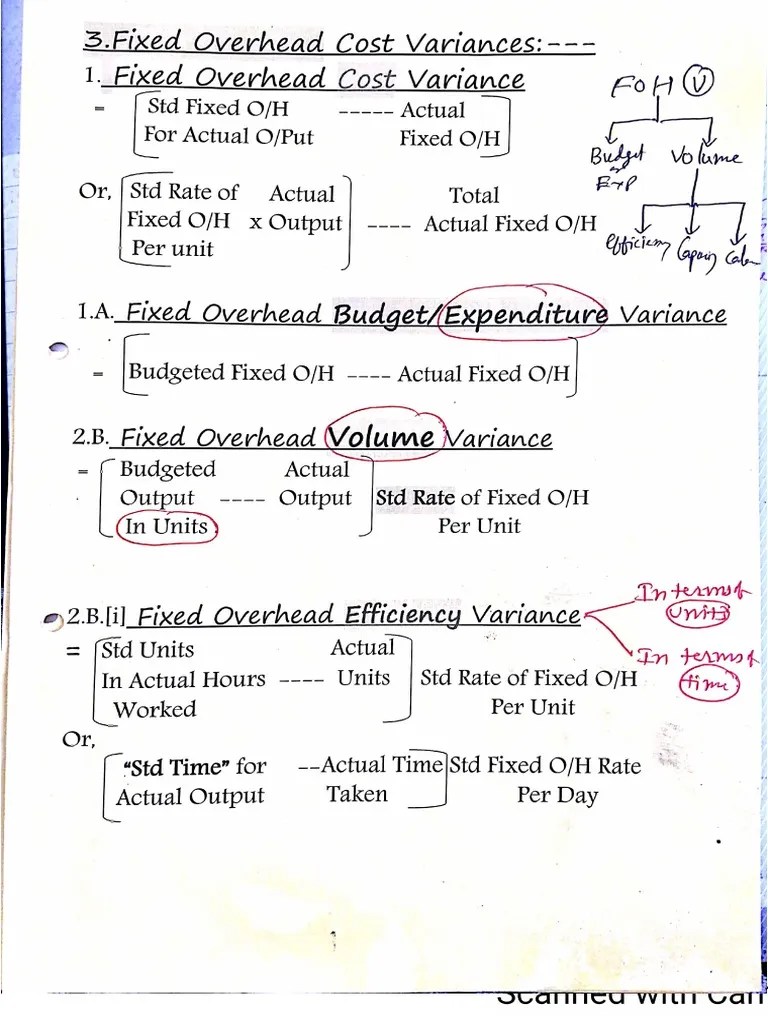 3.Fixed Overhead Cost Variances:---
1. Fixed Overhead Cost Variance
= Std Fixed O/H ----- Actual
For Actual O/Put Fixed O/H
FOH V
Budget Volume
Exp
Efficiency
Or, Std Rate of Actual Total
Fixed O/H x Output ---- Actual Fixed O/H
Per unit
1.A. Fixed Overhead Budget/Expenditure Variance
= Budgeted Fixed O/H ---- Actual Fixed O/H
2.B. Fixed Overhead Volume Variance
= Budgeted Actual
Output ---- Output Std Rate of Fixed O/H
In Units Per Unit
2.B.[i] Fixed Overhead Efficiency Variance
In terms of
units
In terms of
time
= Std Units Actual
In Actual Hours ---- Units Std Rate of Fixed O/H
Worked Per Unit
Or,
"Std Time" for --Actual Time Std Fixed O/H Rate
Actual Output Taken Per Day
Scanned with Cam